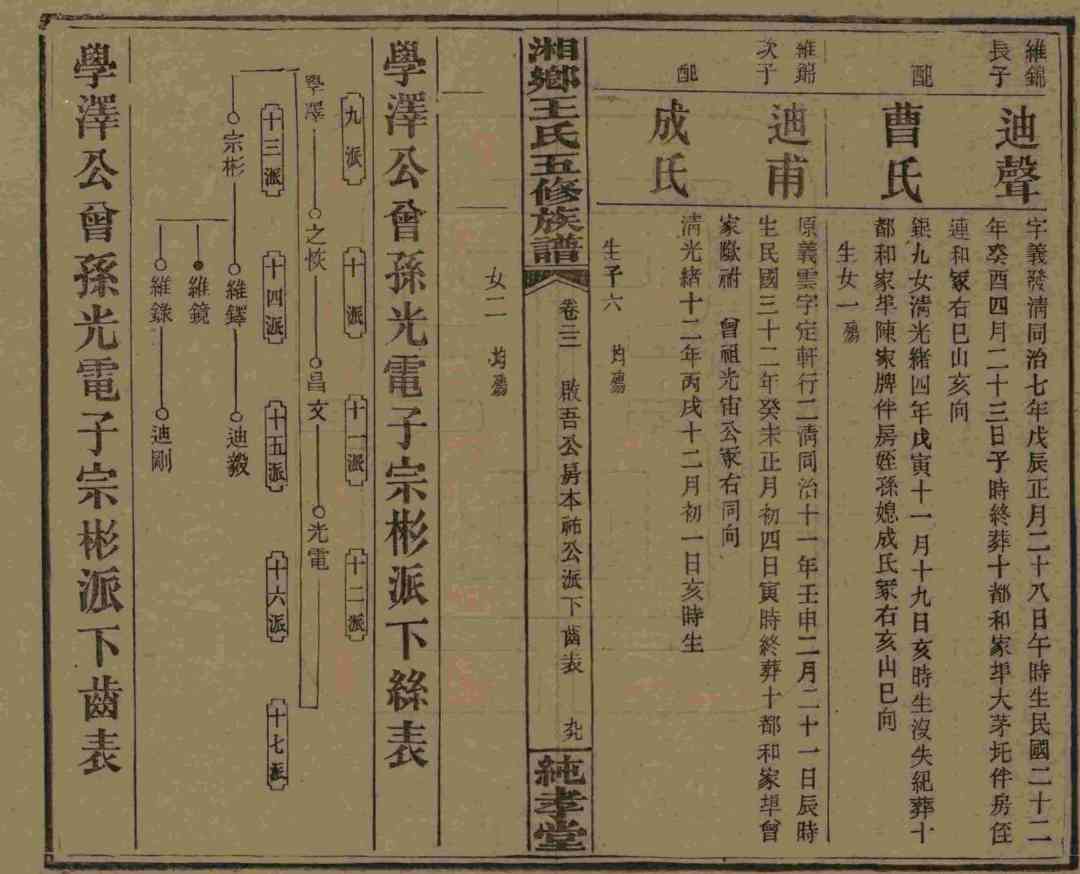 維錦
長子
迪聲
字義發淸同治七年戊辰正月二十八日午時生民國二十二
年癸酉四月二十三日子時終葬十都和家埠大茅坵伴房侄
連和冢右巳山亥向
配
曹氏
銀九女淸光緒四年戊寅十一月十九日亥時生沒失紀葬十
都和家埠陳家牌伴房姪孫媳成氏冢右亥山巳向
生女一殤
維錦
次子
迪甫
原義雲字定軒行二淸同治十一年壬申二月二十一日辰時
生民國三十二年癸未正月初四日寅時終葬十都和家埠曾
家嶽祔 曾祖光宙公冢右同向
配
成氏
淸光緒十二年丙戌十二月初一日亥時生
生子六 均殤
湘鄉王氏五修族譜
卷二三 啟吾公房本祐公派下齒表 九
純孝堂
女二 均殤
學澤公曾孫光電子宗彬派下絲表
九派
十派
十一派
十二派
學澤
之恢
昌文
光電
十三派
十四派
十五派
十六派
十七派
宗彬
維鐸
迪毅
維鏡
維錄
迪剛
學澤公曾孫光電子宗彬派下齒表